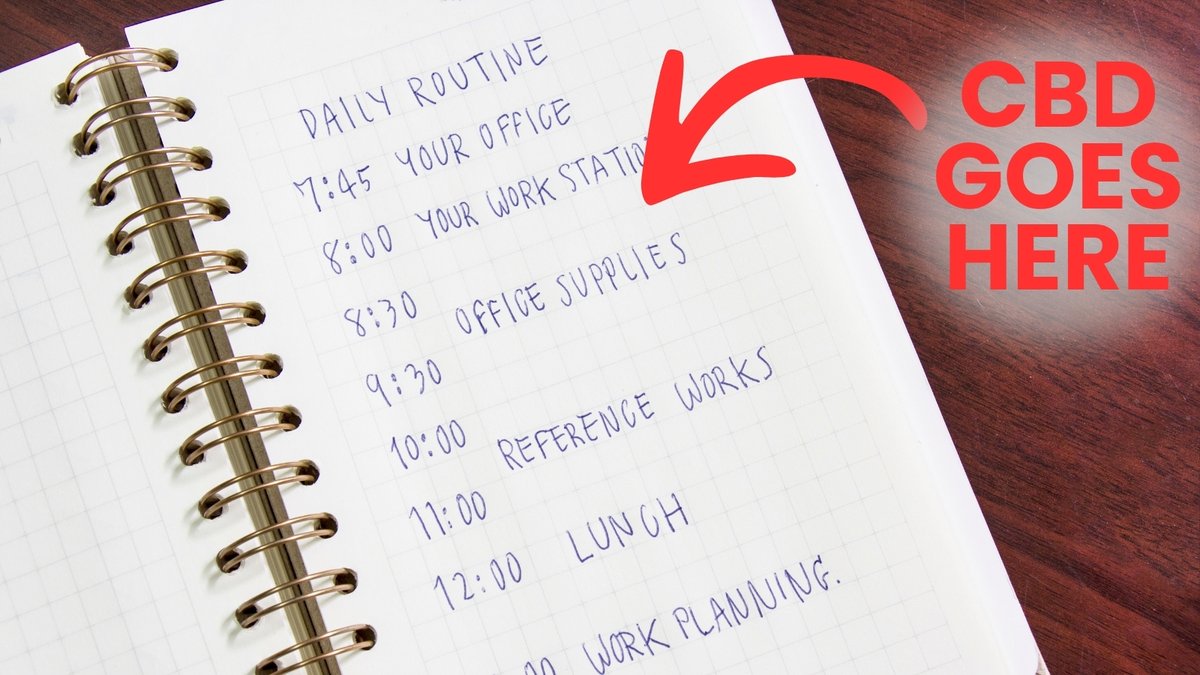 DAILY ROUTINE
7:45 YOUR OFFICE
8:00 YOUR WORK STATION
8:30 OFFICE SUPPLIES
9:30
10:00 REFERENCE WORKS
11:00
12:00 LUNCH
00 WORK PLANNING.
CBD
GOES
HERE